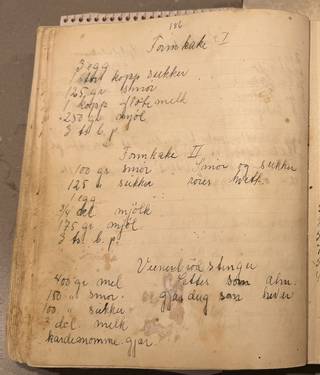 186
Formkake I
3 egg
1 stor kopp sukker
125 gr smör
1 kopp fløte melk
250 gr mjöl
3 ts b.p.
Formkake II
100 gr smör Smör og sukker
125 " sukker röres hvitt
1 egg
3/4 del mjölk
175 gr mjöl
3 ts b.p.
Vienerbröd Stenger
400 gr mel Setter som alm.
150 " smör gjærdeig som hever
100 " sukker
2 del melk
kardemomme gjær